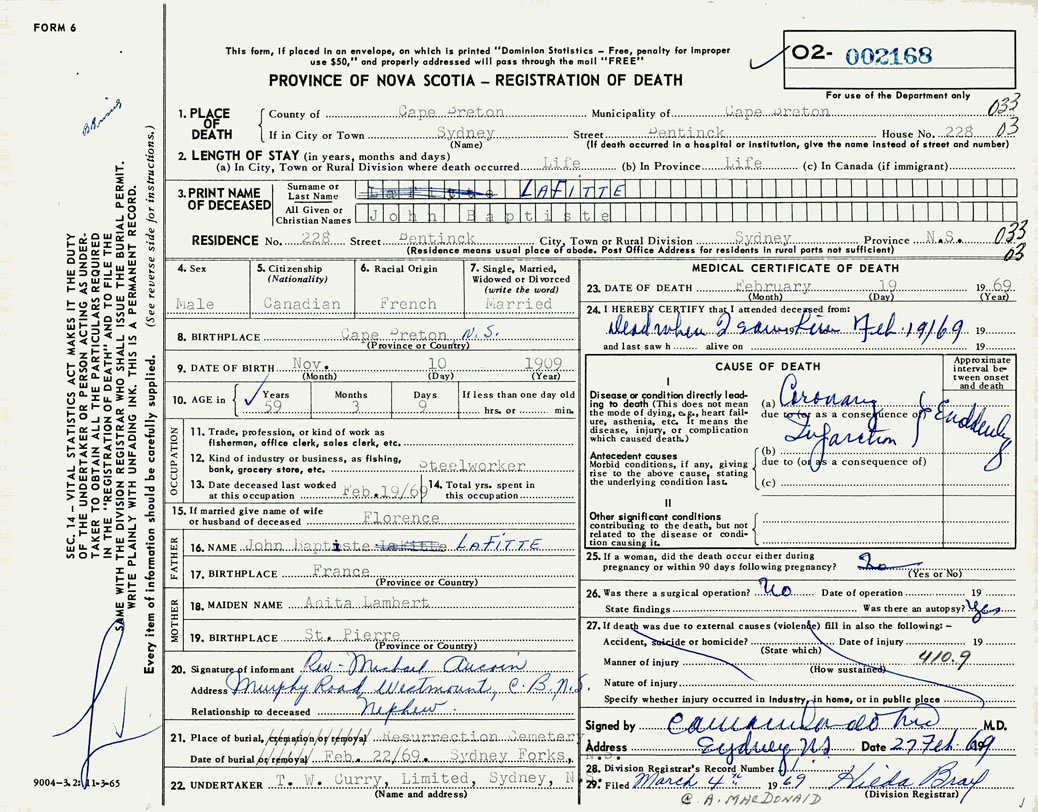 FORM 6
This form, if placed in an envelope, on which is printed "Dominion Statistics – Free, penalty for improper
use $50," and properly addressed will pass through the mail "FREE"
PROVINCE OF NOVA SCOTIA – REGISTRATION OF DEATH
O2- 002168
For use of the Department only
033
03
1. PLACE OF DEATH
County of Cape Breton Municipality of Cape Breton
If in City or Town Sydney Street Bentinck House No. 228
(Name) (If death occurred in a hospital or institution, give the name instead of street and number)
2. LENGTH OF STAY (in years, months and days)
(a) In City, Town or Rural Division where death occurred Life (b) In Province Life (c) In Canada (if immigrant)
3. PRINT NAME OF DECEASED
Surname or Last Name LAFITTE
All Given or Christian Names John Baptiste
RESIDENCE No. 228 Street Bentinck City, Town or Rural Division Sydney Province N.S.
(Residence means usual place of abode. Post Office Address for residents in rural parts not sufficient)
033
03
4. Sex
Male
5. Citizenship
(Nationality)
Canadian
6. Racial Origin
French
7. Single, Married,
Widowed or Divorced
(write the word)
Married
8. BIRTHPLACE Cape Breton N.S.
(Province or Country)
9. DATE OF BIRTH Nov. 10 1909
(Month) (Day) (Year)
10. AGE in Years Months Days If less than one day old
59 3 9 hrs. or min.
OCCUPATION
11. Trade, profession, or kind of work as
fisherman, office clerk, sales clerk, etc.
12. Kind of industry or business, as fishing,
bank, grocery store, etc. Steelworker
13. Date deceased last worked
at this occupation Feb.19/69
14. Total yrs. spent in
this occupation
15. If married give name of wife
or husband of deceased Florence
FATHER
16. NAME John Baptiste Lafitte LAFITTE
17. BIRTHPLACE France
(Province or Country)
MOTHER
18. MAIDEN NAME Anita Lambert
19. BIRTHPLACE St. Pierre
(Province or Country)
20. Signature of informant Rev. Michael Aucoin
Address Murphy Road, Westmount, C.B. N.S.
Relationship to deceased Nephew.
21. Place of burial, cremation or removal Resurrection Cemetery
Date of burial or removal Feb. 22/69. Sydney Forks, N.S.
22. UNDERTAKER T. W. Curry, Limited, Sydney, N.S.
(Name and address)
MEDICAL CERTIFICATE OF DEATH
23. DATE OF DEATH February 19 1969.
(Month) (Day) (Year)
24. I HEREBY CERTIFY that I attended deceased from:
Dead when I saw him Feb. 19/69 19
and last saw h alive on 19
CAUSE OF DEATH
Approximate
interval be-
tween onset
and death
I
Disease or condition directly lead-
ing to death (This does not mean
the mode of dying, e.g., heart fail-
ure, asthenia, etc. It means the
disease, injury, or complication
which caused death.)
(a) Coronary
due to (or as a consequence of)
Infarction
Suddenly
Antecedent causes
Morbid conditions, if any, giving
rise to the above cause, stating
the underlying condition last.
(b)
due to (or as a consequence of)
(c)
II
Other significant conditions
contributing to the death, but not
related to the disease or condi-
tion causing it.
25. If a woman, did the death occur either during
pregnancy or within 90 days following pregnancy?
(Yes or No)
26. Was there a surgical operation? No Date of operation 19
State findings Was there an autopsy? Yes
27. If death was due to external causes (violence) fill in also the following: –
Accident, suicide or homicide? Date of injury 19
(State which)
Manner of injury 410.9
(How sustained)
Nature of injury
Specify whether injury occurred in Industry, in home, or in public place
Signed by M.D.
Address Sydney NS Date 27 Feb 1969
28. Division Registrar's Record Number
29. Filed March 4th 1969 Hilda Bray
(Division Registrar)
C. A. MACDONALD
SEC. 14 – VITAL STATISTICS ACT MAKES IT THE DUTY
OF THE UNDERTAKER OR PERSON ACTING AS UNDER-
TAKER TO OBTAIN ALL THE PARTICULARS REQUIRED
IN THE "REGISTRATION OF DEATH" AND TO FILE THE
SAME WITH THE DIVISION REGISTRAR WHO SHALL ISSUE THE BURIAL PERMIT.
WRITE PLAINLY WITH UNFADING INK. THIS IS A PERMANENT RECORD.
Every item of information should be carefully supplied. (See reverse side for instructions.)
9004-3.2: 11-3-65